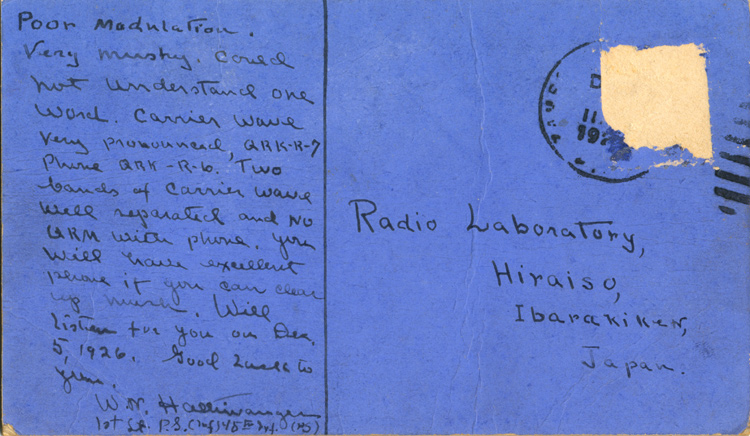 Poor Modulation.
Very mushy. Could
not understand one
word. Carrier wave
very pronounced, QRK-R-7
Phone QRK-R-6. Two
bands of carrier wave
well separated and no
QRM with phone. You
will have excellent
phone if you can clear
up mush. Will
listen for you on Dec.
5, 1926. Good Luck to
you.
W.N.
1st Lt. P.S. 45
Radio Laboratory,
Hiraiso,
Ibarakiken,
Japan.
D
11